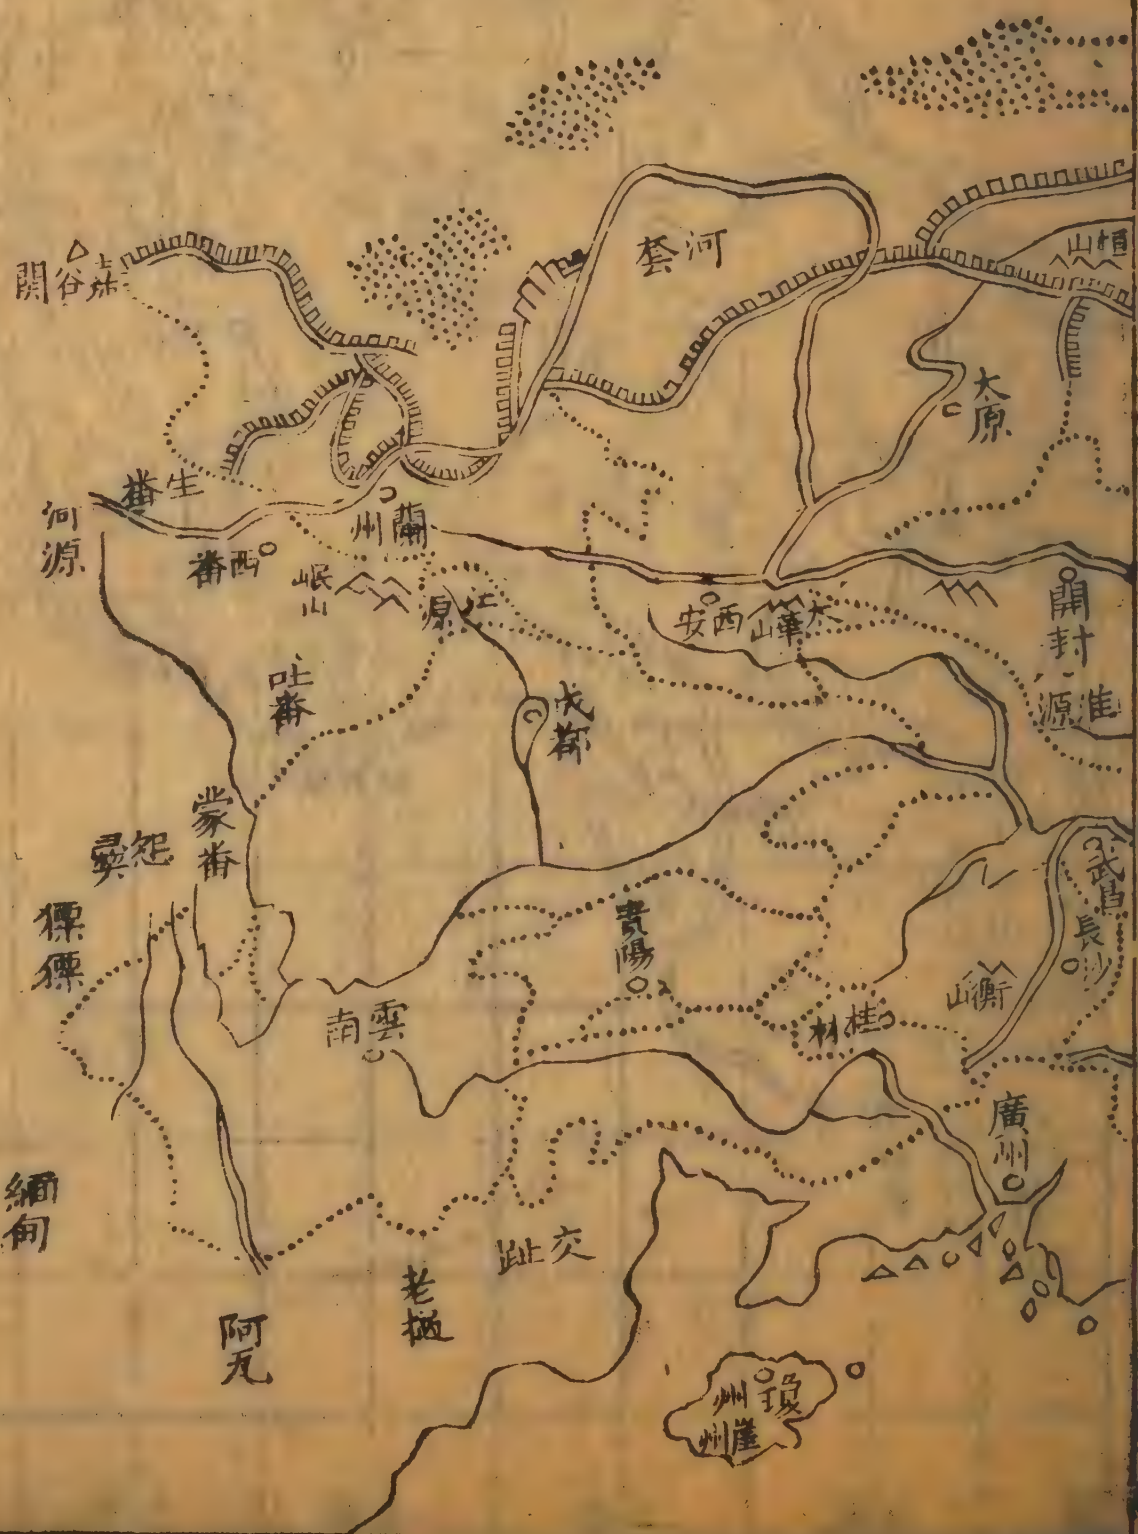 河套
恒山
嘉谷關
太原
生番
河源
蘭州
西番
岷山
江源
西安
太華山
開封
淮源
吐番
成都
蒙番
怨
猓猓
武昌
長沙
貴陽
衡山
桂林
雲南
廣州
緬甸
交趾
老撾
阿瓦
瓊州
崖州